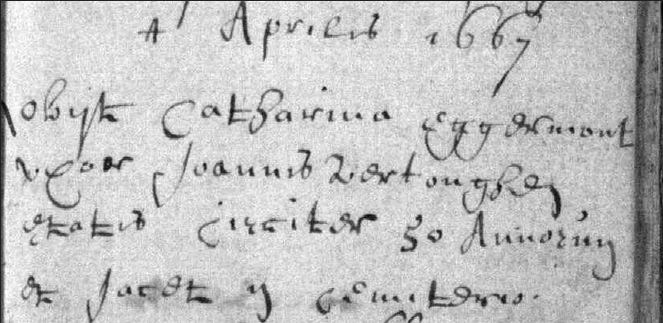 4 Aprilis 1667
obijt Catharina Eggermont
uxor Joannis Vertonghen
etatis circiter 50 Annorum
et Jacet in cemiterio.